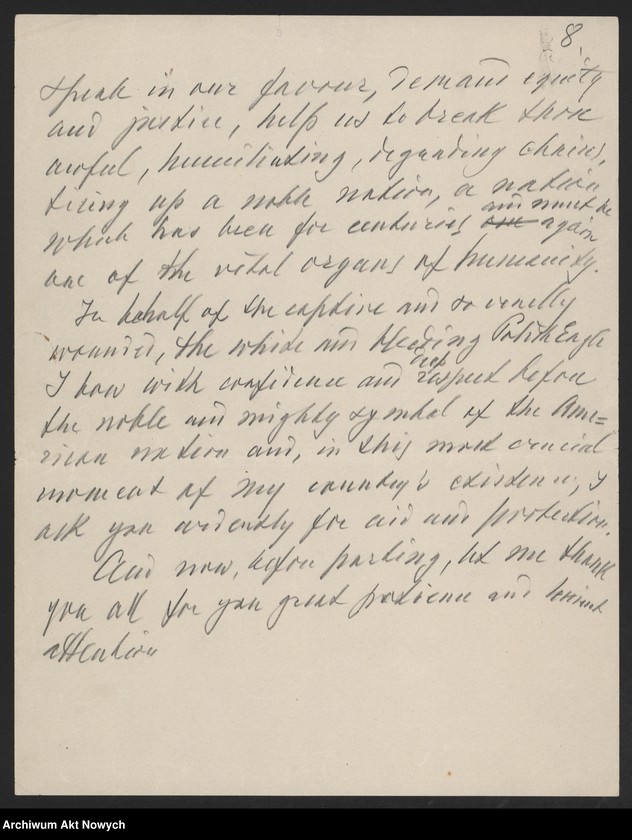 8.
speak in our favour, demand equity
and justice, help us to break those
awful, humiliating, degrading chains,
tieing up a noble nation, a nation
which has been for centuries one and must be again
one of the vital organs of humanity.
In behalf of the captive and so cruelly
wounded, the white and bleeding Polish Eagle
I bow with confidence and deep respect before
the noble and mighty symbol of the Ame=
rican nation and, in this most crucial
moment of my country's existence, I
ask you ardently for aid and protection.
And now, before parting, let me thank
you all for you great patience and
attention
Archiwum Akt Nowych